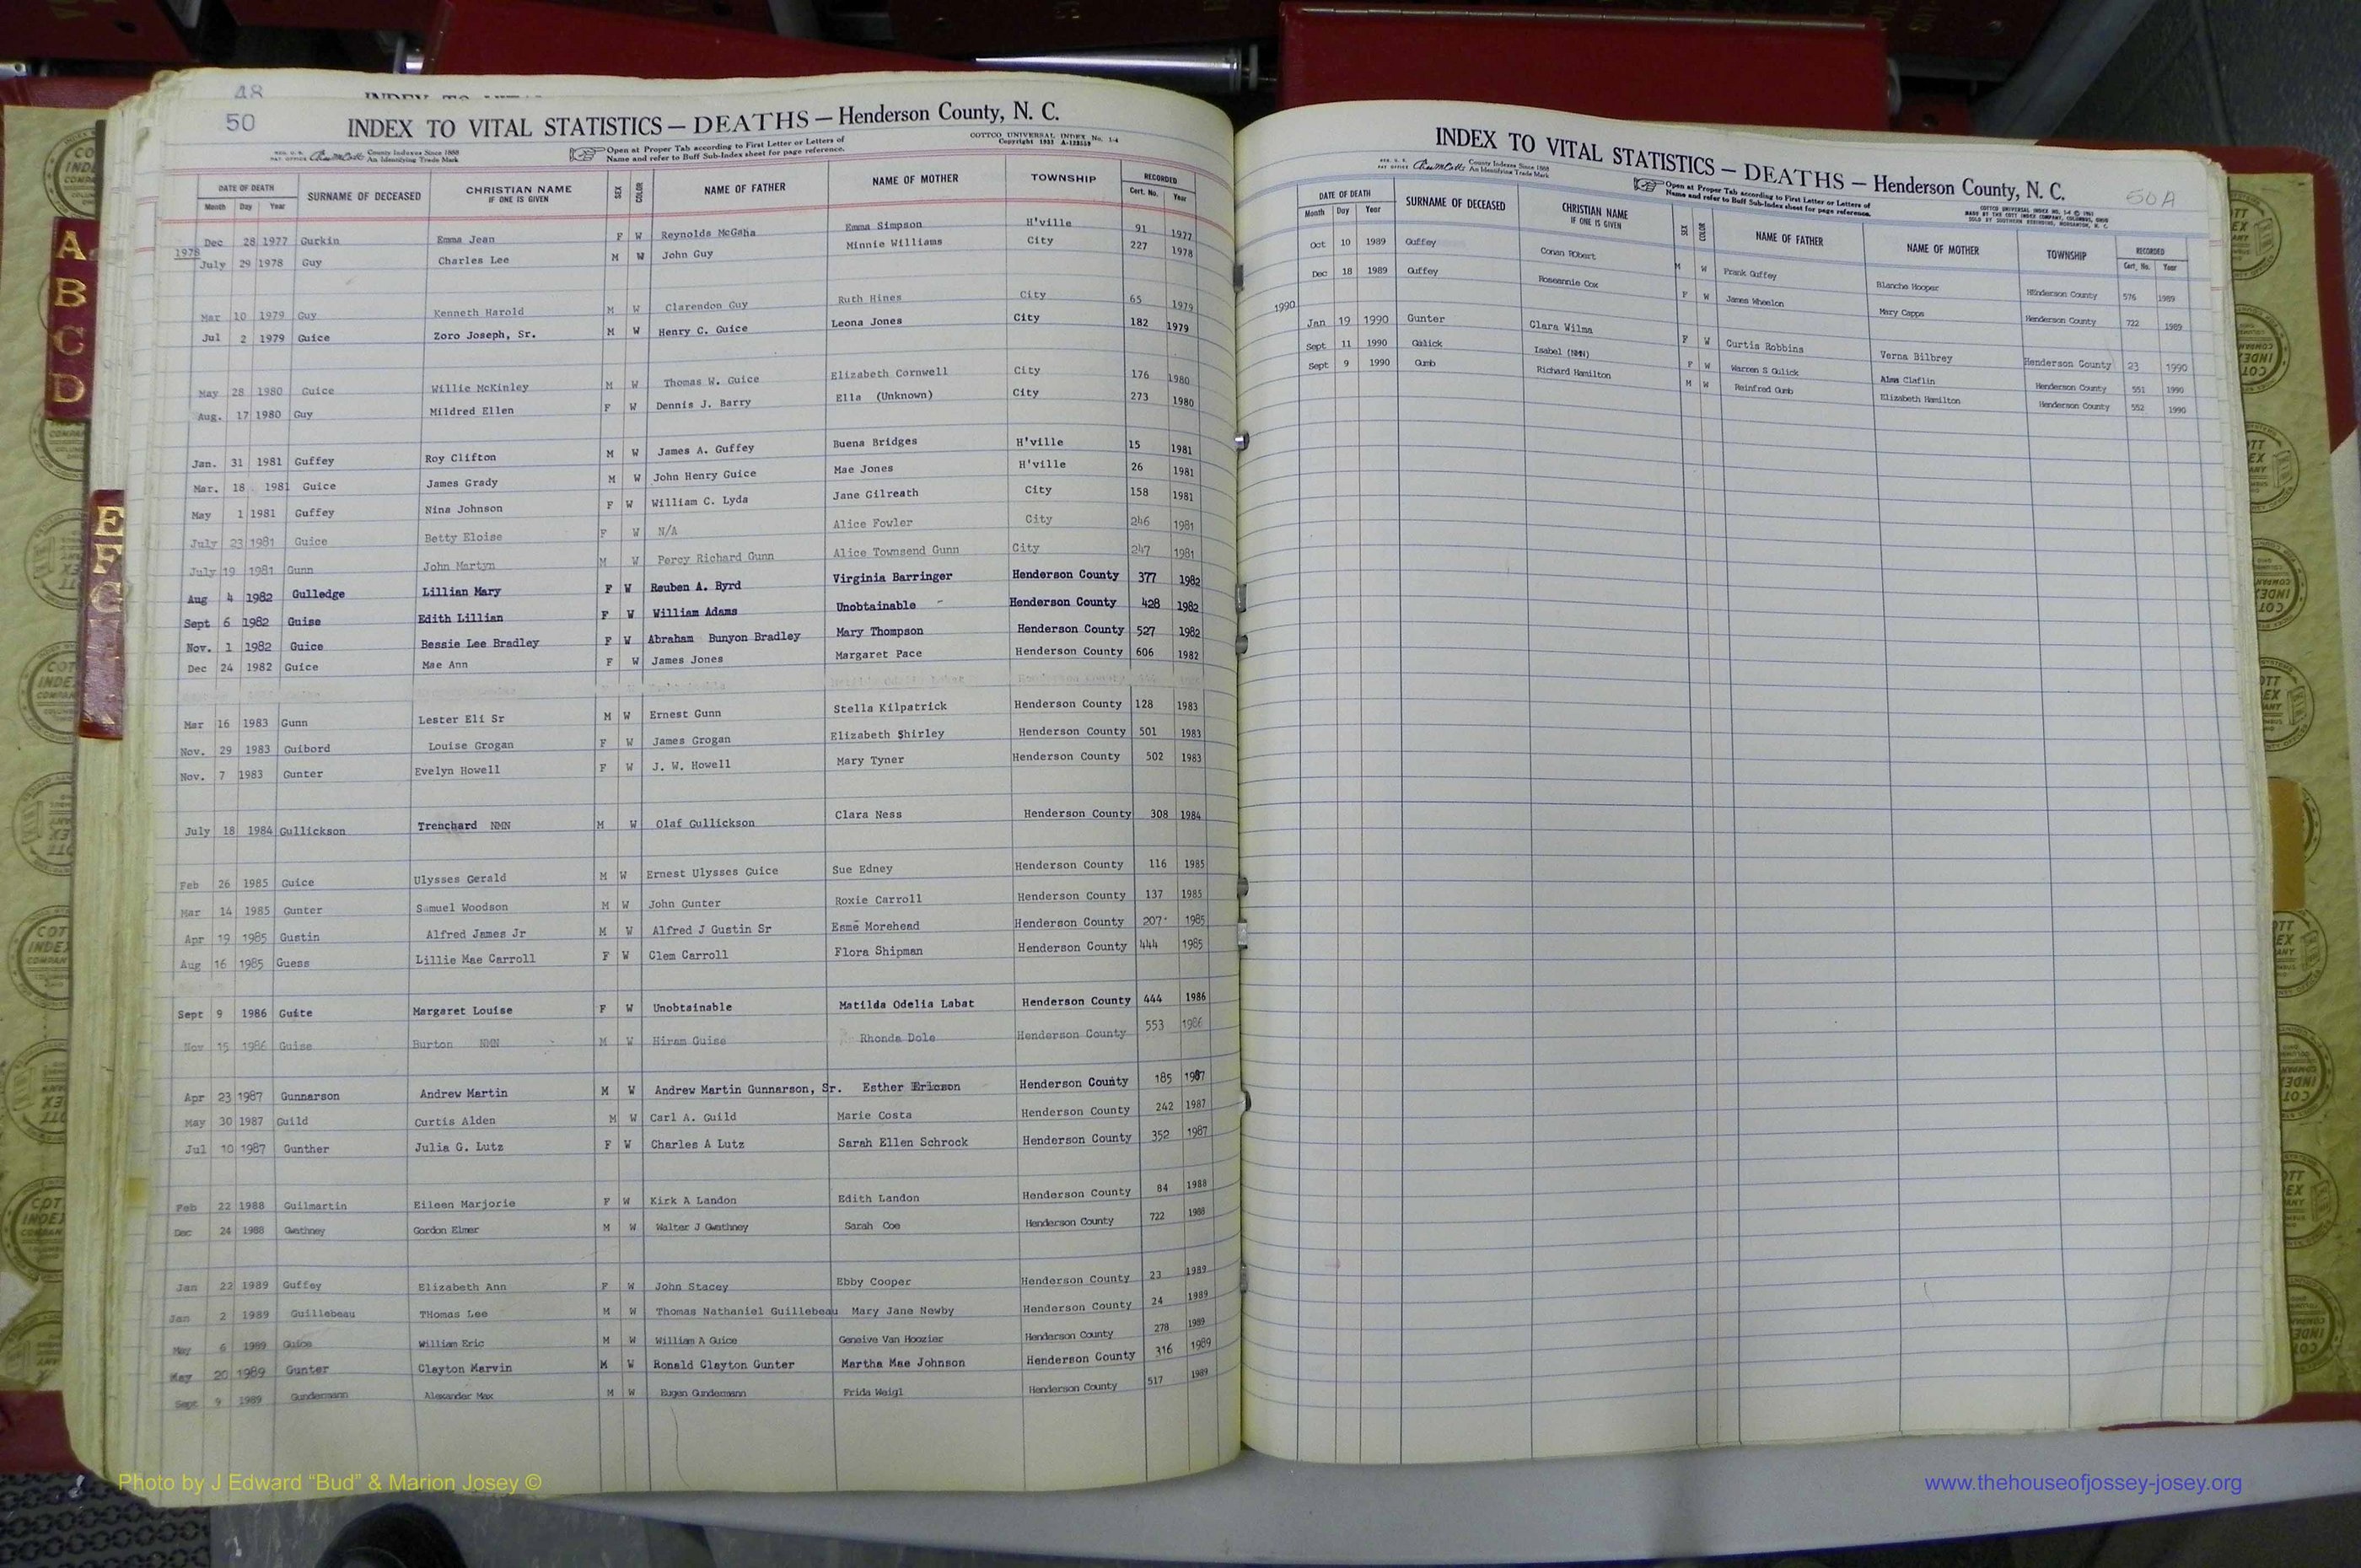 48
50
INDEX TO VITAL STATISTICS — DEATHS — Henderson County, N. C.
County Indexes Since 1888
An Identifying Trade Mark
Open at Proper Tab according to First Letter or Letters of
Name and refer to Buff Sub-Index sheet for page reference.
COTTCO UNIVERSAL INDEX No. 1-4
DATE OF DEATH SURNAME OF DECEASED CHRISTIAN NAME IF ONE IS GIVEN SEX COLOR NAME OF FATHER NAME OF MOTHER TOWNSHIP RECORDED
Month Day Year Cert. No. Year
Dec 28 1977 Gurkin Emma Jean F W Reynolds McGaha Emma Simpson H'ville 91 1977
1978
July 29 1978 Guy Charles Lee M W John Guy Minnie Williams City 227 1978
Mar 10 1979 Guy Kenneth Harold M W Clarendon Guy Ruth Hines City 65 1979
Jul 2 1979 Guice Zoro Joseph, Sr. M W Henry C. Guice Leona Jones City 182 1979
May 28 1980 Guice Willie McKinley M W Thomas W. Guice Elizabeth Cornwell City 176 1980
Aug. 17 1980 Guy Mildred Ellen F W Dennis J. Barry Ella (Unknown) City 273 1980
Jan. 31 1981 Guffey Roy Clifton M W James A. Guffey Buena Bridges H'ville 15 1981
Mar. 18 1981 Guice James Grady M W John Henry Guice Mae Jones H'ville 26 1981
May 1 1981 Guffey Nina Johnson F W William C. Lyda Jane Gilreath City 158 1981
July 23 1981 Guice Betty Eloise F W N/A Alice Fowler City 246 1981
July 19 1981 Gunn John Martyn M W Percy Richard Gunn Alice Townsend Gunn City 247 1981
Aug 4 1982 Gulledge Lillian Mary F W Reuben A. Byrd Virginia Barringer Henderson County 377 1982
Sept 6 1982 Guise Edith Lillian F W William Adams Unobtainable Henderson County 428 1982
Nov. 1 1982 Guice Bessie Lee Bradley F W Abraham Bunyon Bradley Mary Thompson Henderson County 527 1982
Dec 24 1982 Guice Mae Ann F W James Jones Margaret Pace Henderson County 606 1982
Mar 16 1983 Gunn Lester Eli Sr M W Ernest Gunn Stella Kilpatrick Henderson County 128 1983
Nov. 29 1983 Guibord Louise Grogan F W James Grogan Elizabeth Shirley Henderson County 501 1983
Nov. 7 1983 Gunter Evelyn Howell F W J. W. Howell Mary Tyner Henderson County 502 1983
July 18 1984 Gullickson Trenchard NMN M W Olaf Gullickson Clara Ness Henderson County 308 1984
Feb 26 1985 Guice Ulysses Gerald M W Ernest Ulysses Guice Sue Edney Henderson County 116 1985
Mar 14 1985 Gunter Samuel Woodson M W John Gunter Roxie Carroll Henderson County 137 1985
Apr 19 1985 Gustin Alfred James Jr M W Alfred J Gustin Sr Esme Morehead Henderson County 207 1985
Aug 16 1985 Guess Lillie Mae Carroll F W Clem Carroll Flora Shipman Henderson County 444 1985
Sept 9 1986 Guite Margaret Louise F W Unobtainable Matilda Odelia Labat Henderson County 444 1986
Nov 15 1986 Guise Burton NMN M W Hiram Guise Rhonda Dole Henderson County 553 1986
Apr 23 1987 Gunnarson Andrew Martin M W Andrew Martin Gunnarson, Sr. Esther Ericson Henderson County 185 1987
May 30 1987 Guild Curtis Alden M W Carl A. Guild Marie Costa Henderson County 242 1987
Jul 10 1987 Gunther Julia G. Lutz F W Charles A Lutz Sarah Ellen Schrock Henderson County 352 1987
Feb 22 1988 Guilmartin Eileen Marjorie F W Kirk A Landon Edith Landon Henderson County 84 1988
Dec 24 1988 Gwathney Gordon Elmer M W Walter J Gwathney Sarah Coe Henderson County 722 1988
Jan 22 1989 Guffey Elizabeth Ann F W John Stacey Ebby Cooper Henderson County 23 1989
Jan 2 1989 Guillebeau THomas Lee M W Thomas Nathaniel Guillebeau Mary Jane Newby Henderson County 24 1989
May 6 1989 Guice William Eric M W William A Guice Geneive Van Hoozier Henderson County 278 1989
May 20 1989 Gunter Clayton Marvin M W Ronald Clayton Gunter Martha Mae Johnson Henderson County 316 1989
Sept 9 1989 Gundermann Alexander Max M W Eugen Gundermann Frida Weigl Henderson County 517 1989
A
B
C
D
E
F
G
INDEX TO VITAL STATISTICS — DEATHS — Henderson County, N. C.
50A
County Indexes Since 1888
An Identifying Trade Mark
Open at Proper Tab according to First Letter or Letters of
Name and refer to Buff Sub-Index sheet for page reference.
DATE OF DEATH SURNAME OF DECEASED CHRISTIAN NAME IF ONE IS GIVEN SEX COLOR NAME OF FATHER NAME OF MOTHER TOWNSHIP RECORDED
Month Day Year Cert. No. Year
Oct 10 1989 Guffey Conan RObert M W Frank Guffey Blanche Hooper HEnderson County 576 1989
Dec 18 1989 Guffey Roseannie Cox F W James Wheelon Mary Capps Henderson County 722 1989
1990
Jan 19 1990 Gunter Clara Wilma F W Curtis Robbins Verna Bilbrey Henderson County 23 1990
Sept 11 1990 Gulick Isabel (NMN) F W Warren S Gulick Alma Claflin Henderson County 551 1990
Sept 9 1990 Gumb Richard Hamilton M W Reinfred Gumb Elizabeth Hamilton Henderson County 552 1990
Photo by J Edward “Bud” & Marion Josey ©
www.thehouseofjossey-josey.org